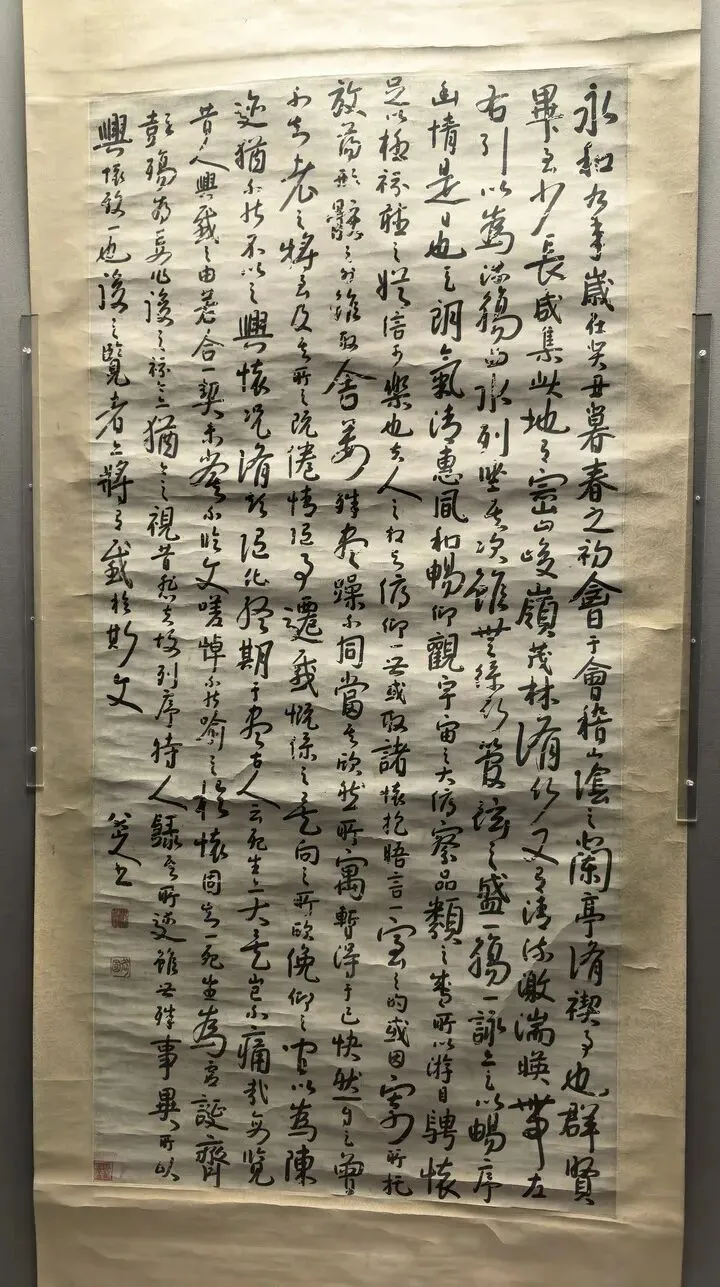 永和九年歲在癸丑暮春之初會于會稽山陰之蘭亭脩禊事也群賢
畢至少長咸集此地有崇山峻嶺茂林脩竹又有清流激湍暎帶左
右引以爲流觴曲水列坐其次雖無絲竹管弦之盛一觴一詠亦足以暢序
幽情是日也天朗氣清惠風和暢仰觀宇宙之大俯察品類之盛所以游目騁懷
足以極視聽之娛信可樂也夫人之相與俯仰一世或取諸懷抱晤言一室之內或因寄所托
放蕩形骸之外雖取舍萬殊躁不同當其欣然所寓暫得于己快然自足曾
不知老之將至及其所之既倦情隨事遷感慨係之矣向之所欣俛仰之間以爲陳
迹猶不能不以之興懷況脩短隨化終期于盡古人云死生亦大矣豈不痛哉每覽
昔人興感之由若合一契未嘗不臨文嗟悼不能喻之於懷固知一死生爲虛誕齊
彭殤爲妄作後之視今亦猶今之視昔悲夫故列序時人錄其所述雖世殊事異所以
興懷致一也後之覽者亦將有感於斯文
八大山人書